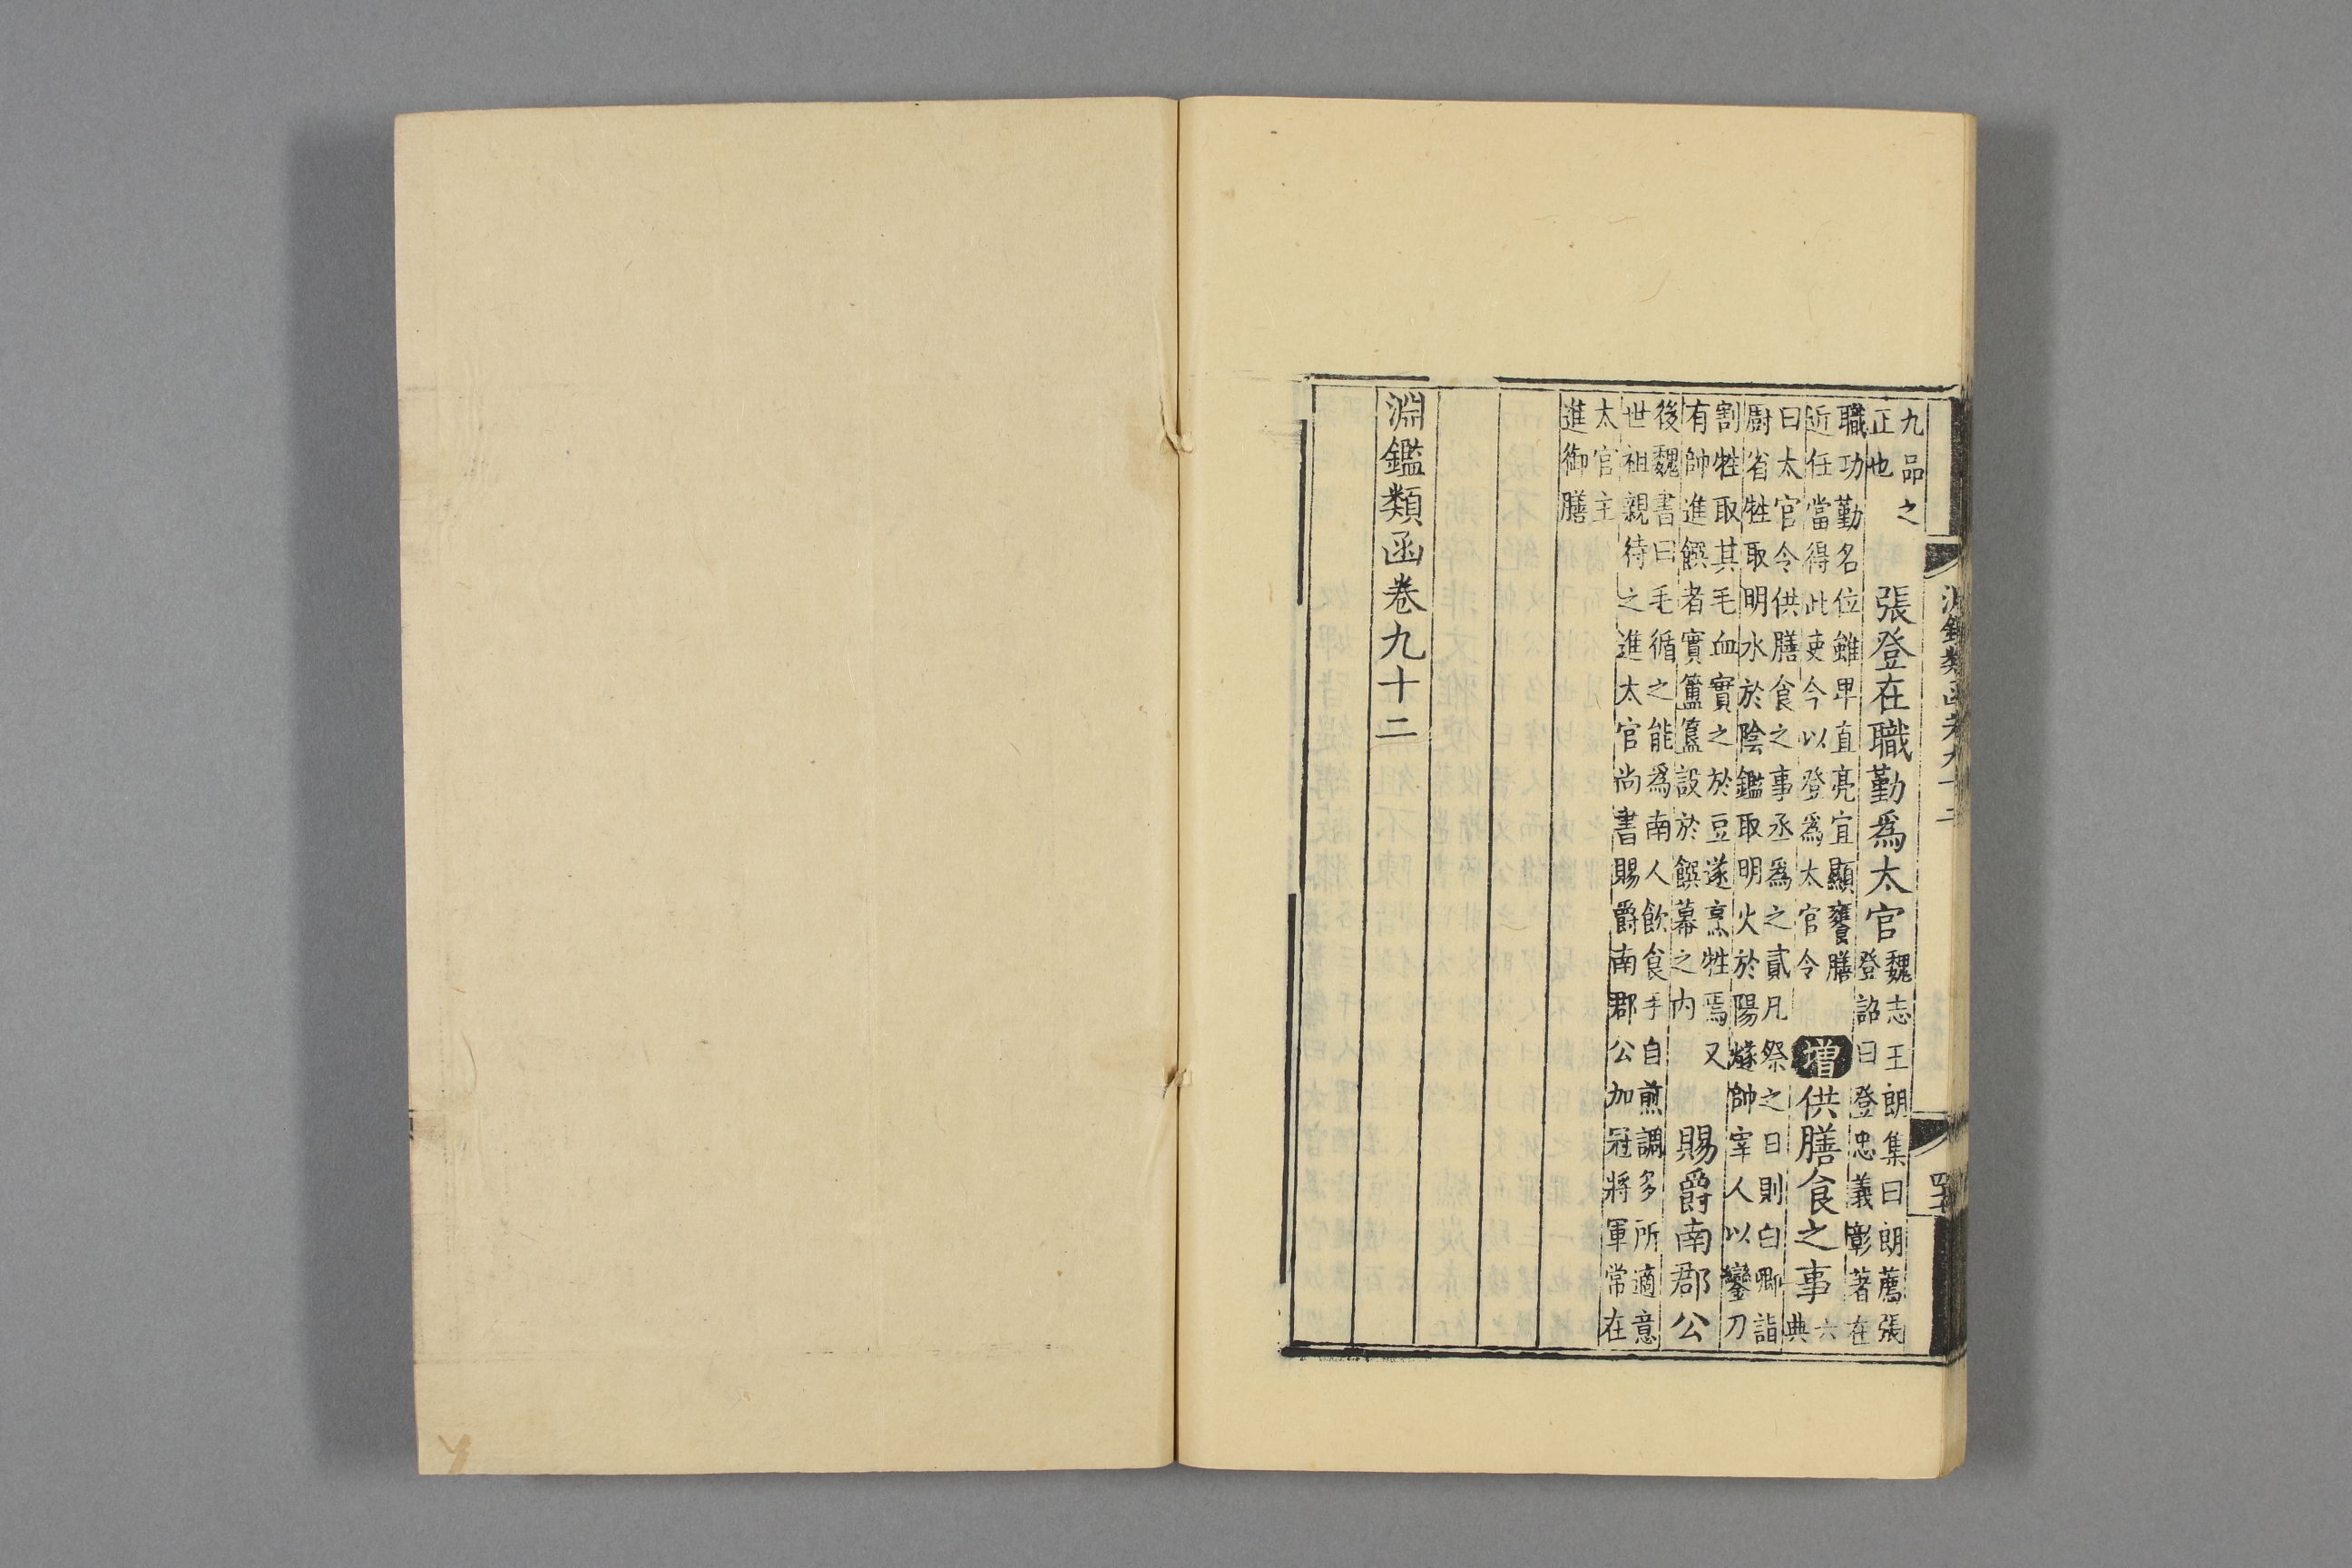 九品之
正也
張登在職勤爲太官
魏志王朗集曰朗薦張
登詔曰登忠義彰著在
職功勤名位雖卑直亮宜顯饔膳
近任當得此吏今以登爲太官令
增
供膳食之事
六
典
曰太官令供膳食之事丞爲之貳凡祭之日則白卿詣
厨省牲取明水於陰鑑取明火於陽燧帥宰人以鑾刀
割牲取其毛血實之於豆遂烹牲焉又
有帥進饌者實簠簋設於饌幕之内
賜爵南郡公
後魏書曰毛循之能爲南人飲食手自煎調多所適意
世祖親待之進太官尚書賜爵南郡公加冠將軍常在
太官主
進御膳
淵鑑類函卷九十二